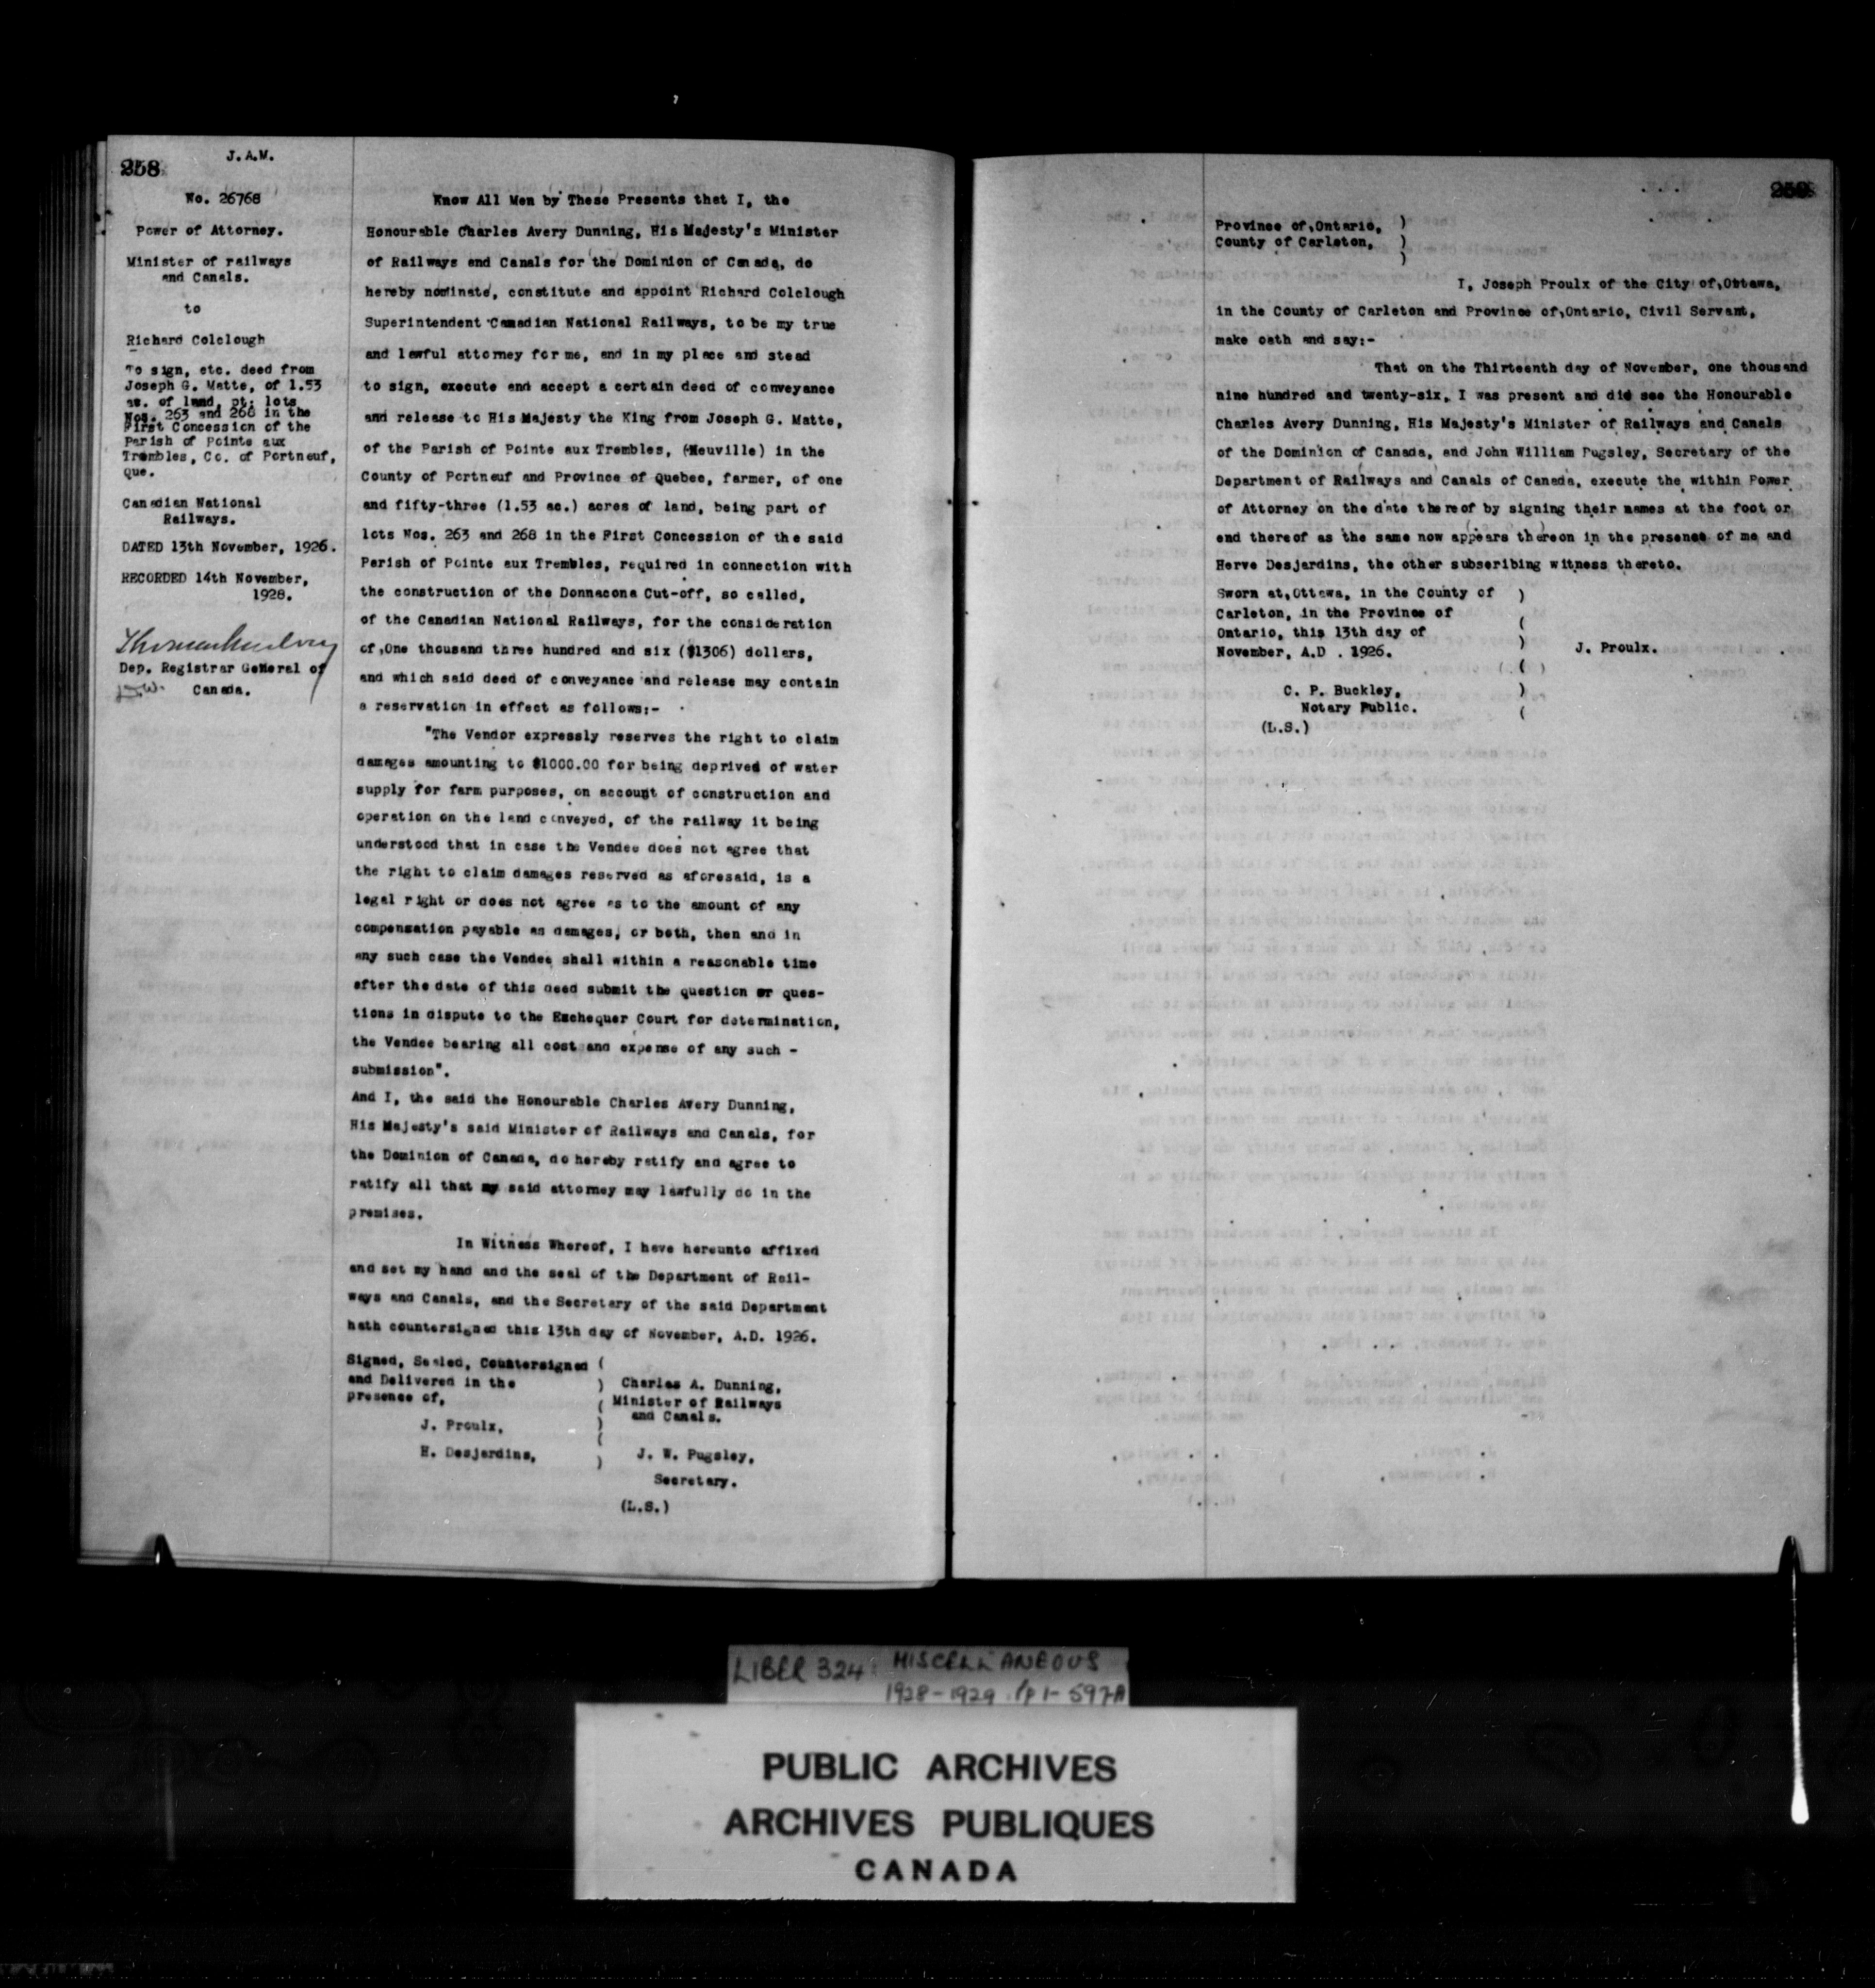 258
J.A.M.
No. 26768
Power of Attorney.
Minister of railways
and Canals.
to
Richard Colclough
To sign, etc. deed from
Joseph G. Matte, of 1.53
ac. of land, pt: lots
Nos. 263 and 268 in the
First Concession of the
Parish of Pointe aux
Trembles, Co. of Portneuf,
Que.
Canadian National
Railways.
DATED 13th November, 1926.
RECORDED 14th November,
1928.
Dep. Registrar General of
Canada.
Know All Men by These Presents that I, the
Honourable Charles Avery Dunning, His Majesty's Minister
of Railways and Canals for the Dominion of Canada, do
hereby nominate, constitute and appoint Richard Colclough
Superintendent Canadian National Railways, to be my true
and lawful attorney for me, and in my place and stead
to sign, execute and accept a certain deed of conveyance
and release to His Majesty the King from Joseph G. Matte,
of the Parish of Pointe aux Trembles, (Neuville) in the
County of Portneuf and Province of Quebec, farmer, of one
and fifty-three (1.53 ac.) acres of land, being part of
lots Nos. 263 and 268 in the First Concession of the said
Parish of Pointe aux Trembles, required in connection with
the construction of the Donnacona Cut-off, so called,
of the Canadian National Railways, for the consideration
of One thousand three hundred and six ($1306) dollars,
and which said deed of conveyance and release may contain
a reservation in effect as follows:-
"The Vendor expressly reserves the right to claim
damages amounting to $1000.00 for being deprived of water
supply for farm purposes, on account of construction and
operation on the land conveyed, of the railway it being
understood that in case the Vendee does not agree that
the right to claim damages reserved as aforesaid, is a
legal right or does not agree as to the amount of any
compensation payable as damages, or both, then and in
any such case the Vendee shall within a reasonable time
after the date of this deed submit the question or ques-
tions in dispute to the Exchequer Court for determination,
the Vendee bearing all cost and expense of any such -
submission".
And I, the said the Honourable Charles Avery Dunning,
His Majesty's said Minister of Railways and Canals, for
the Dominion of Canada, do hereby ratify and agree to
ratify all that my said attorney may lawfully do in the
premises.
In Witness Whereof, I have hereunto affixed
and set my hand and the seal of the Department of Rail-
ways and Canals, and the Secretary of the said Department
hath countersigned this 13th day of November, A.D. 1926.
Signed, Sealed, Countersigned (
and Delivered in the ) Charles A. Dunning,
presence of, ( Minister of Railways
and Canals.
J. Proulx, )
(
H. Desjardins, ) J. W. Pugsley,
Secretary.
(L.S.)
259
Province of Ontario, )
County of Carleton, )
)
I, Joseph Proulx of the City of Ottawa,
in the County of Carleton and Province of Ontario, Civil Servant,
make oath and say:-
That on the Thirteenth day of November, one thousand
nine hundred and twenty-six, I was present and did see the Honourable
Charles Avery Dunning, His Majesty's Minister of Railways and Canals
of the Dominion of Canada, and John William Pugsley, Secretary of the
Department of Railways and Canals of Canada, execute the within Power
of Attorney on the date thereof by signing their names at the foot or
end thereof as the same now appears thereon in the presence of me and
Herve Desjardins, the other subscribing witness thereto.
Sworn at Ottawa, in the County of )
Carleton, in the Province of (
Ontario, this 13th day of )
November, A.D . 1926. J. Proulx.
(
C. P. Buckley, )
Notary Public. (
(L.S.)
LIBER 324: MISCELLANEOUS
1928-1929 pp 1-597A
PUBLIC ARCHIVES
ARCHIVES PUBLIQUES
CANADA